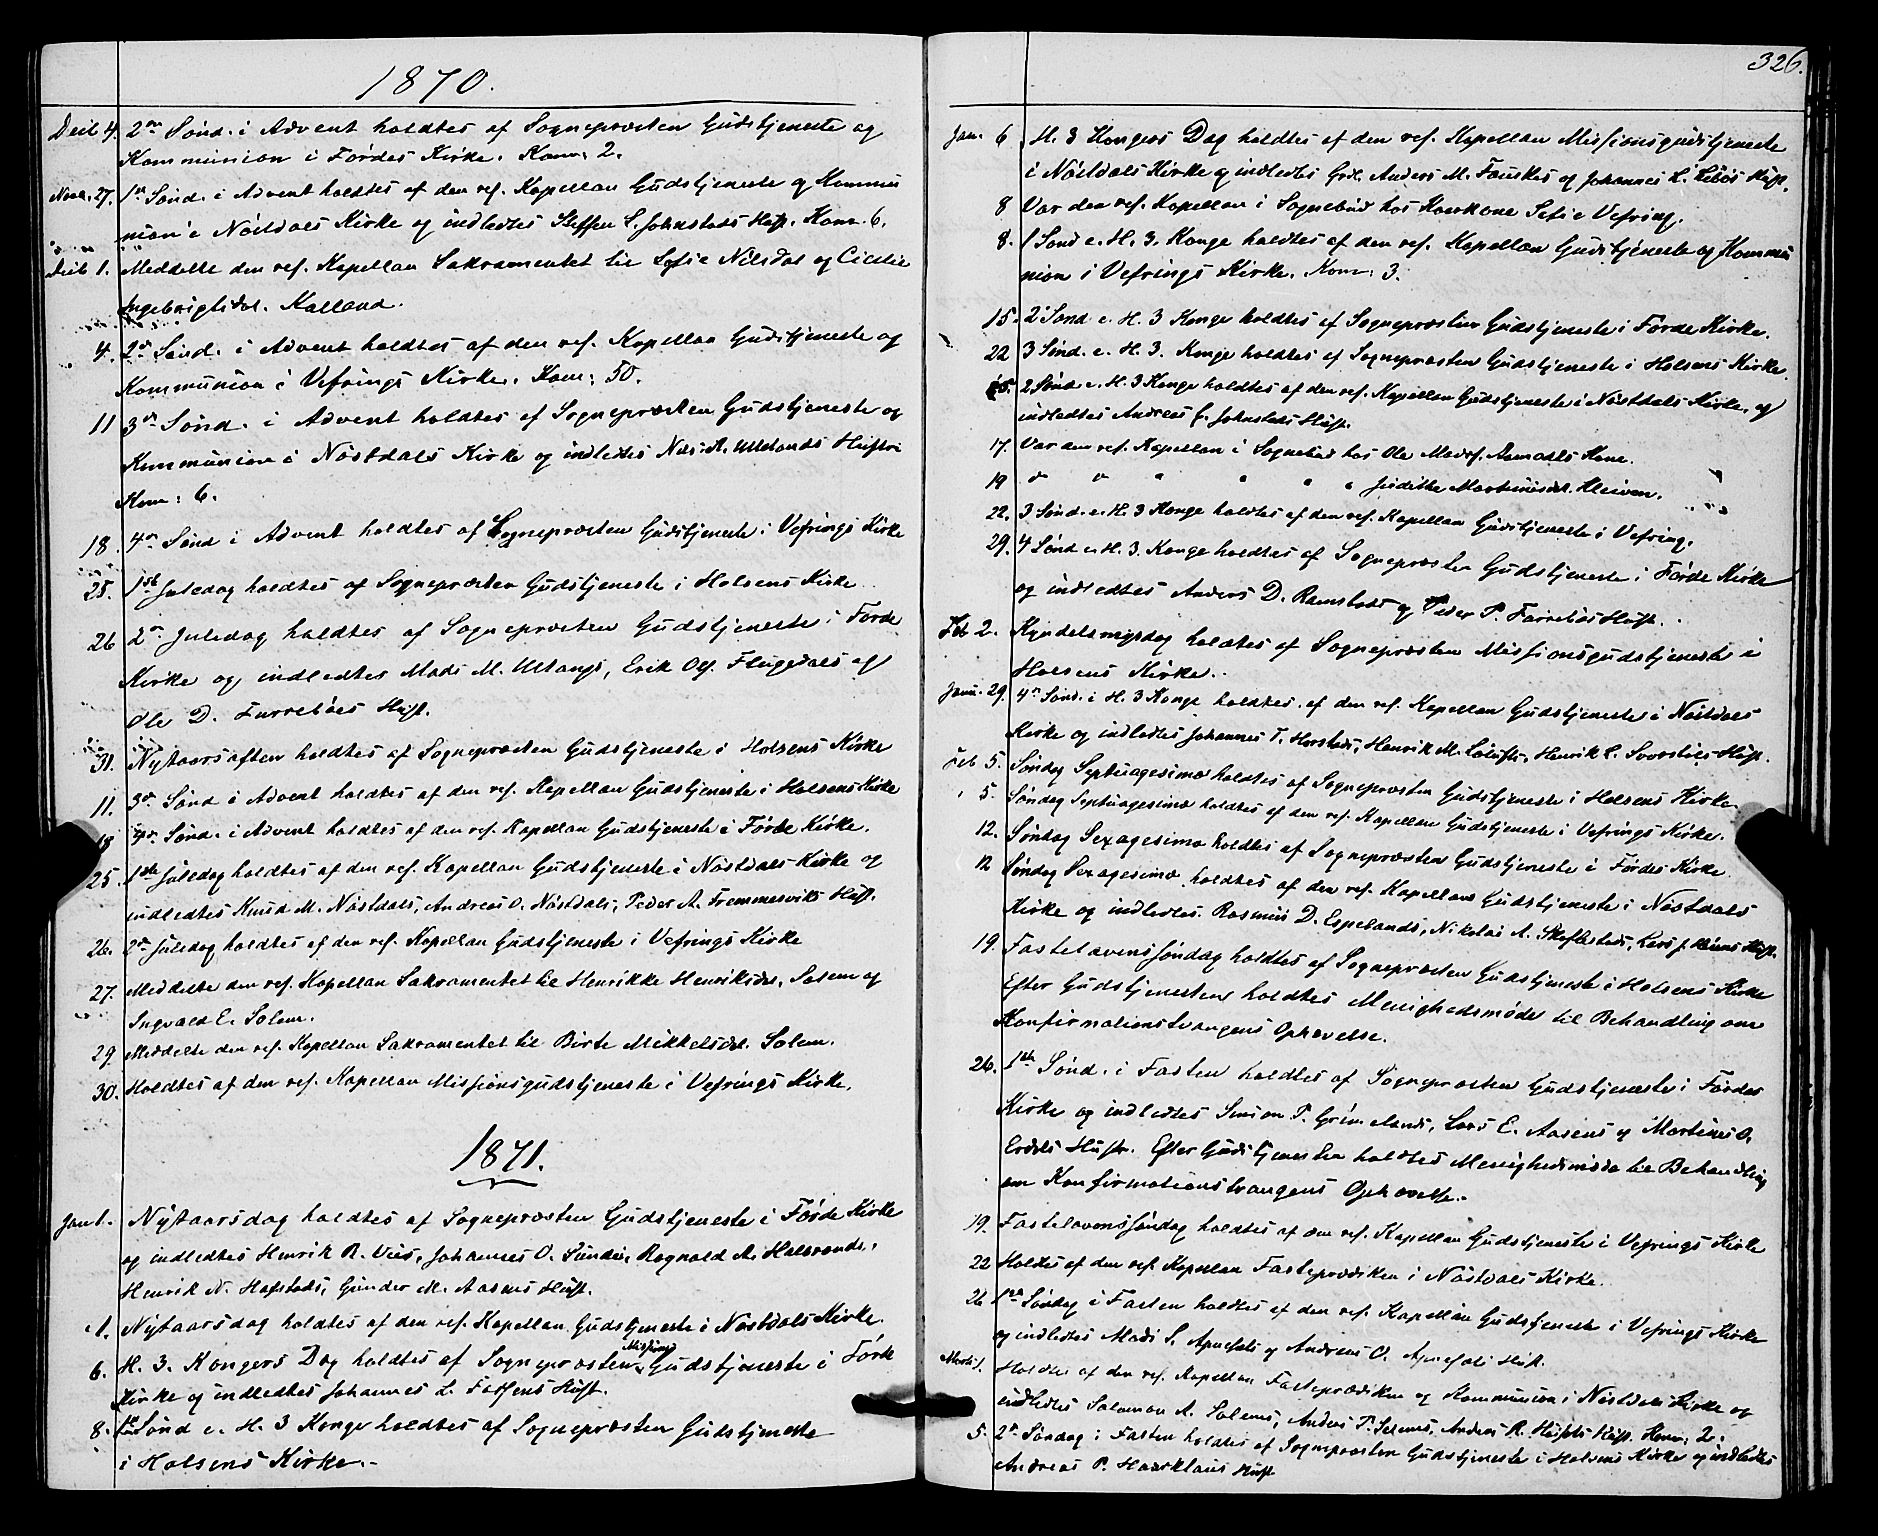 1870.
Decb 4. 2den Sønd. i Advent holdtes af Sognepræsten Gudstjeneste og
Kommunion i Førdes Kirke. Kom: 2.
Novb. 27. 1ste Sønd. i Advent holdtes af den ref. Kapellan Gudstjeneste og Kommu
nion i Nøstdals Kirke og indledtes Steffen S. Johnstads Hust. Kom. 6.
Decb 1. Meddelte den ref. Kapellan Sakramentet til Sofie Nilsdat og Cicilie
Ingebrigtsdat. Kalland.
4. 2den Sønd. i Advent holdtes af den ref. Kapellan Gudstjeneste og
Kommunion i Vefrings Kirke. Kom: 50.
11 3die Sønd. i Advent holdtes af Sognepræsten Gudstjeneste og
Kommunion i Nøstdals Kirke og indledtes Nils R. Ullelands Hustri
Kom: 6.
18. 4de Sønd i Advent holdtes af Sognepræsten Gudstjeneste i Vefrings Kirke
25. 1ste Juledag holdtes af Sognepræsten Gudstjeneste i Holsens Kirke
26 2den Juledag holdtes af Sognepræsten Gudstjeneste i Førde
Kirke og indledtes Mads M. Ullangs, Erik Ols. Fluggdals og
Ole D. Furrebøes Hust.
31. Nytaarsaften holdtes af Sognepræsten Gudstjeneste i Holsens Kirke
11. 3die Sønd i Advent holdtes af den ref. Kapellan Gudstjeneste i Holsens Kirke
18 4de Sønd. i Advent holdtes af den ref. Kapellan Gudstjeneste i Førde Kirke.
25. 1ste Juledag holdtes af den ref. Kapellan Gudstjeneste i Nøstdals Kirke og
indledtes Knud M. Nøstdals, Andreas O. Nøstdals, Peder A. Fremmersviks Hust.
26. 2den Juledag holdtes af den ref. Kapellan Gudstjeneste i Vefrings Kirke
27. Meddelte den ref. Kapellan Sakramentet til Henrikke Henriksdat. Solem og
Ingvald E. Solem.
29 Meddelte den ref. Kapellan Sakramentet til Birte Mikkelsdat. Solem.
30. Holdtes af den ref. Kapellan Missionsgudstjeneste i Vefrings Kirke.
1871.
Jan 1. Nytaarsdag holdtes af Sognepræsten Gudstjeneste i Førde Kirke
og indledtes Henrik R. Vies, Johannes O. Sunde, Ragnald A. Halbrends,
Henrik N. Hafstads, Gunder M. Aasens Hust.
1. Nytaarsdag holdtes af den ref. Kapellan Gudstjeneste i Nøstdals Kirke.
6. H. 3. Kongers Dag holdtes af Sognepræsten Missions Gudstjeneste i Førde
Kirke og indledtes Johannes L. Fossens Hust.
8. 1ste Sønd e. H. 3 Konge holdtes af Sognepræsten Gudstjeneste
i Holsens Kirke.-
326.
Jan. 6 H. 3 Kongers Dag holdtes af den ref. Kapellan Missionsgudstjeneste
i Nøstdals Kirke og indledtes Anders M. Fauskes og Johannes L. Hust.
8 Var den ref. Kapellan i Sognebud hos Kaarkone Sofie Vefring.
8. 1 Sønd e. H. 3. Konge holdtes af den ref. Kapellan Gudstjeneste og Kommu
nion i Vefrings Kirke. Kom: 3.
15. 2 Sønd e. H. 3 Konge holdtes af Sognepræsten Gudstjeneste i Førde Kirke.
22 3 Sønd. e. H. 3. Konge holdtes af Sognepræsten Gudstjeneste i Holsens Kirke.
15. 2 Sønd e. H. 3 Konge holdtes af den ref. Kapellan Gudstjeneste i Nøstdals Kirke, og
indledtes Andreas Johnstads Hust.
17. Var den ref. Kapellan i Sognebud hos Ole Kone.
19 " " " " " " Judithe Martinusdat. Kleiven.
22. 3 Sønd. e. H. 3 Konge holdtes af den ref. Kapellan Gudstjeneste i Vefring.
29. 4 Sønd e. H. 3. Konge holdtes af Sognepræsten Gudstjeneste i Førde Kirke
og indledtes Anders D. Ramstads og Peder P. Farrebøs Hust.
Feb 2. Kyndelsmysdag holdtes af Sognepræsten Missionsgudstjeneste i
Holsens Kirke.
Janu. 29. 4de Sønd. e H. 3 Konge holdtes af den ref. Kapellan Gudstjeneste i Nøstdals
Kirke og indledtes Johannes T. Horstads, Henrik M. Henrik L. Hust.
Feb 5. Søndag Septuagesima holdtes af Sognepræsten Gudstjeneste i Holsens Kirke.
5. Søndag Septuagesima holdtes af den ref. Kapellan Gudstjeneste i Vefrings Kirke.
12. Søndag Sexagesima holdtes af Sognepræsten Gudstjeneste i Førdes Kirke
12 Søndag Sexagesima holdtes af den ref. Kapellan Gudstjeneste i Nøstdals
Kirke og indledtes Rasmus D. Espelands, Nikolai A. Lars J. Hust.
19. Fastelavenssøndag holdtes af Sognepræsten Gudstjeneste i Holsens Kirke
Efter Gudstjenesten holdtes Menighedsmøde til Behandling om
Konfirmationstvangens Ophævelse.
26. 1ste Sønd. i Fasten holdtes af Sognepræsten Gudstjeneste i Førdes
Kirke og indledtes Simon P. Grimelands, Lars E. Aasens og Martinus O.
Erdals Hustr. Efter Gudstjenesten holdtes Menighedsmøde til Behandling
om Konfirmationstvangens Ophævelse.-
19. Fastelavenssøndag holdtes af den ref. Kapellan Gudstjeneste i Vefrings Kirke
22 Holdtes af den ref. Kapellan Fasteprædiken i Nøstdals Kirke.
26 1ste Søndag i Fasten holdtes af den ref. Kapellan Gudstjeneste i Vefrings Kirke
og indledtes Mads S. og Andreas O. Hust.
Marts 1. Holdtes af den ref. Kapellan Fasteprædiken og Kommunion i Nøstdals Kirke og
indledtes Salomon A. Solems, Anders P. Solems, Anders R. Hust. Kom: 2.
5. 2den Søndag i Fasten holdtes af Sognepræsten Gudstjeneste i Holsens Kirke og indledtes
Andreas P. Haarklaus Hust